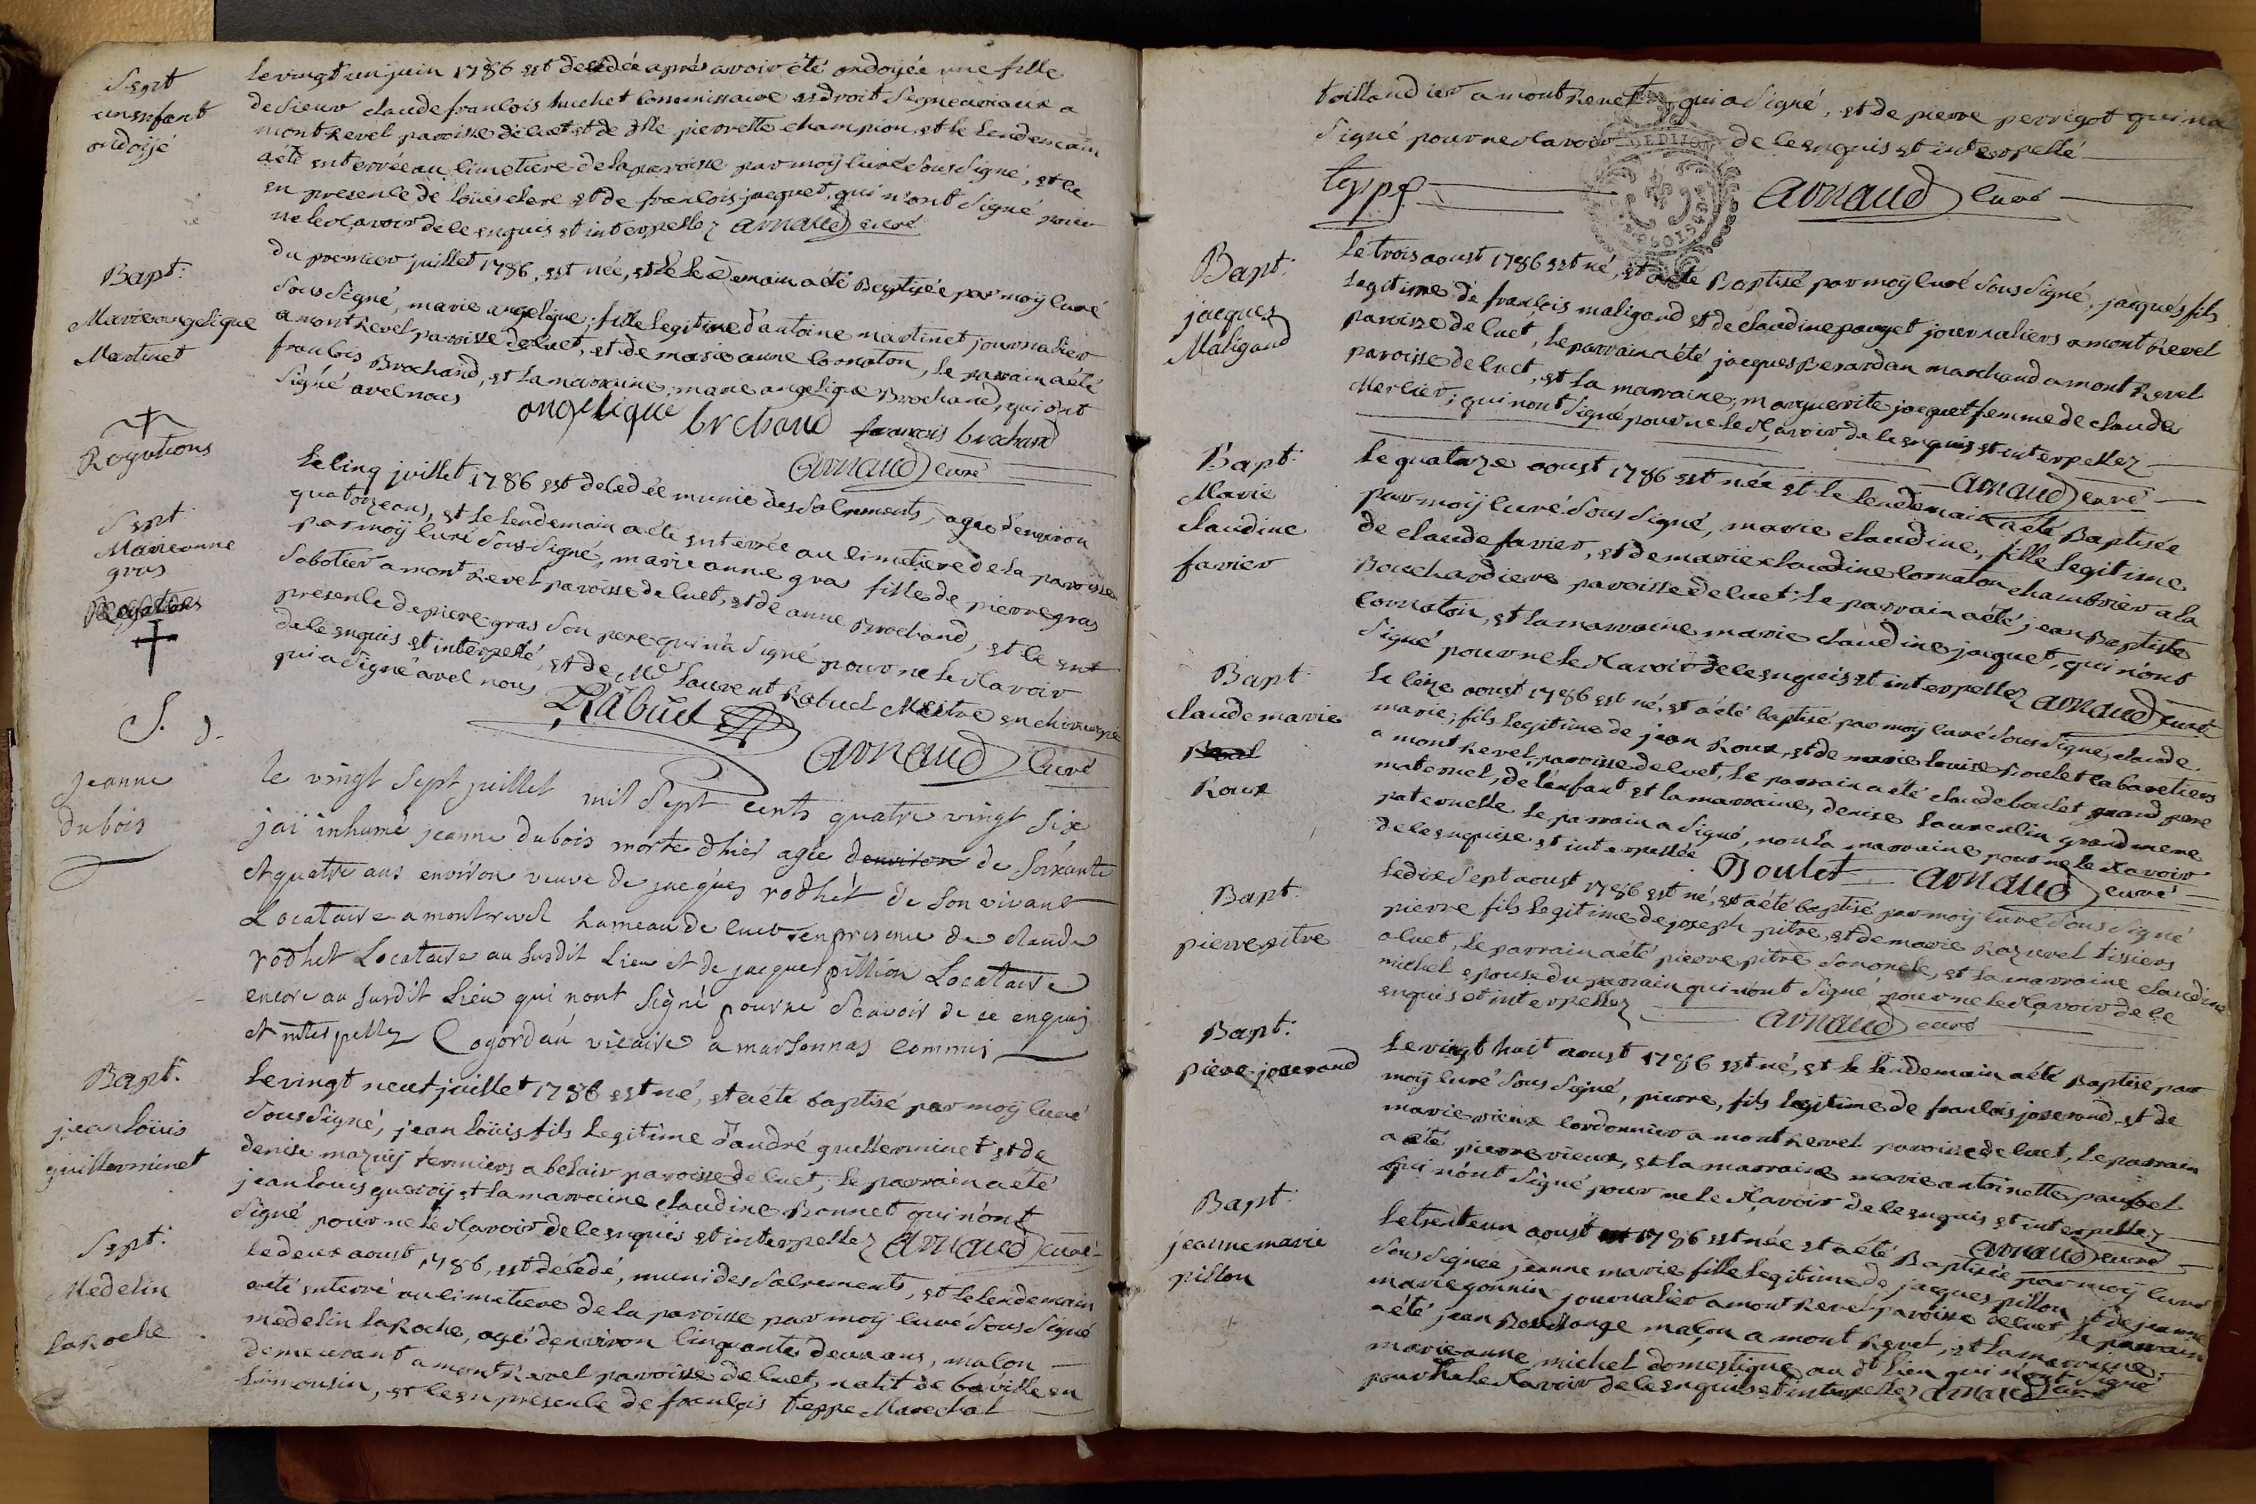 Sept
un enfant
ondoyé
le vingt un juin 1786 est decedée aprés avoir été ondoyée une fille
de sieur claude francois huchet Commissaire es droit Seigneuriaux a
montrevel paroisse de cuet et de dlle pierrette champion, et le Lendemain
a été enterrée au cimetiere de la paroisse par moÿ curé sous signé, et ce
en presence de Loüis clere et de francois jacquet, qui n'ont signé pour
ne le sçavoir de ce enquis et interpellez arnaud curé
Bapt:
Marie angelique
Martinet
du premier juillet 1786, est née, et le Lendemain a été Baptisée par moÿ curé
sous signé, marie angelique, fille legitime d'antoine martinet journalier
a montrevel paroisse de cuet, et de marie anne cornaton, le parrain a été
francois Brochand, et la marraine, marie angelique Brochand, qui ont
signé avec nous
angelique brchand francois brochand
arnaud curé
Rogations
Sept
Marie anne
gras
Rogations
le cinq juillet 1786 est decedée munie des sacrements, agée d'environ
quatorze ans, et le lendemain a été enterrée au cimetiere de la paroisse
par moÿ curé sous signé, marie anne gras fille de pierre gras
sabotier a montrevel paroisse de cuet, et de anne Brochand, et ce en
presence de pierre gras son pere qui n'a signé pour ne le sçavoir
de ce enquis et interpellé, et de Mr Laurent Rabuel Maitre en chirurgie
qui a signé avec nous
Rabuel
arnaud Curé
S. D.
Jeanne
dubois
le vingt sept juillet mil sept cents quatre vingt six
jaï inhumé jeanne dubois morte dhier agée denviron de soixante
et quatre ans environ veuve de jacques rodhet de son vivant
Locataire a montrevel hameau de cuet en presence de claude
rodhet Locataire au susdit Lieu et de jacques pillion Locataire
encore au susdit Lieu qui nont signé pour ne scavoir de ce enquis
et interpellez Cogordan vicaire a marsonnas commis
Bapt:
jean loüis
guillerminet
le vingt neuf juillet 1786 est né, et a été baptisé par moÿ curé
sous signé, jean loüis fils legitime d'andré guillerminet et de
denise mazuÿ fermiers a belair paroisse de cuet, le parrain a été
jean louis guerrÿ et la marraine claudine Bonnet qui n'ont
signé pour ne le sçavoir de ce enquis et interpellez arnaud curé
Sept:
Medelin
LaRoche
le deux aoust 1786, est décédé, muni des sacrements, et le lendemain
a été enterré au cimetiere de la paroisse par moÿ curé sous signé
medelin LaRoche, agé d'environ cinquante deux ans, maçon
demeurant a montrevel paroisse de cuet, natif de baville en
Limousin, et ce en presence de francois teppe Marechal
taillandier a montrevel qui a signé, et de pierre perrigot qui n'a
signé pour ne sçavoir de ce enquis et interpellé
teppe
arnaud curé
DE DIJON
Bapt:
jacques
Maligand
le trois aoust 1786 est né, et a été Baptisé par moÿ curé sous signé, jacques fils
legitime de francois maligand et de claudine pauget journaliers a montrevel
paroisse de cuet, le parrain a été jacques Berardan marchand a montrevel
paroisse de cuet, et la marraine, marguerite jacquet femme de claude
Mercier, qui n'ont signé pour ne le sçavoir de ce enquis et interpellez
arnaud curé
Bapt:
Marie
claudine
favier
le quatorze aoust 1786 est née et le lendemain a été Baptisée
par moÿ curé sous signé, marie claudine, fille legitime
de claude favier, et de marie claudine cornaton chambrier a la
Bouchardiere paroisse de cuet. le parrain a été, jean Baptiste
cornaton, et la marraine marie claudine jacquet, qui n'ont
signé pour ne le sçavoir de ce enquis et interpellez arnaud curé
Bapt:
claude marie
Roux
le seize aoust 1786 est né, et a été baptisé par moÿ curé sous signé, claude
marie, fils legitime de jean Roux, et de marie louise boulet cabaretiers
a montrevel, paroisse de cuet, le parrain a été claude boulet grand pere
maternel, de l'enfant et la marraine, denise Laurencin grand mere
paternelle le parrain a signé, non la marraine pour ne le sçavoir
de ce enquise et interpellée Boulet arnaud curé
Bapt:
pierre pitre
le dix sept aoust 1786 est né, et a été baptisé par moÿ curé sous signé
pierre fils legitime de joseph pitre, et de marie Razurel tissiers
a cuet, le parrain a été pierre pitre son oncle, et la marraine claudine
michel epouse du parrain qui n'ont signé pour ne le sçavoir de ce
enquis et interpellez arnaud curé
Bapt:
pierre joserand
le vingt huit aoust 1786 est né, et le lendemain a été Baptisé par
moÿ curé sous signé, pierre, fils legitime de francois joserand et de
marie vieux cordonnier a montrevel paroisse de cuet, le parrain
a été pierre vieux, et la marraine marie antoinette paufsel
qui n'ont signé pour ne le sçavoir de ce enquis et interpellez
arnaud curé
Bapt:
jeanne marie
pillon
le treiteun aoust 1786 est née et a été Baptisée par moÿ curé
sous signée jeanne marie fille legitime de jacques pillon et de jeanne
marie gonnin journalier a montrevel paroisse de cuet, le parrain
a été jean Boulange maçon a montrevel, et la marraine
marie anne michel domestique au dt lieu qui n'ont signé
pour ne le sçavoir de ce enquis et interpellez arnaud curé